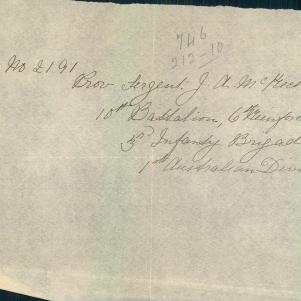 746
212-10
No 2191
Prov Sergent J. A. McK
10th Battalion, 6th Reinfor
3rd Infantry Brigad
1st Australian Divi